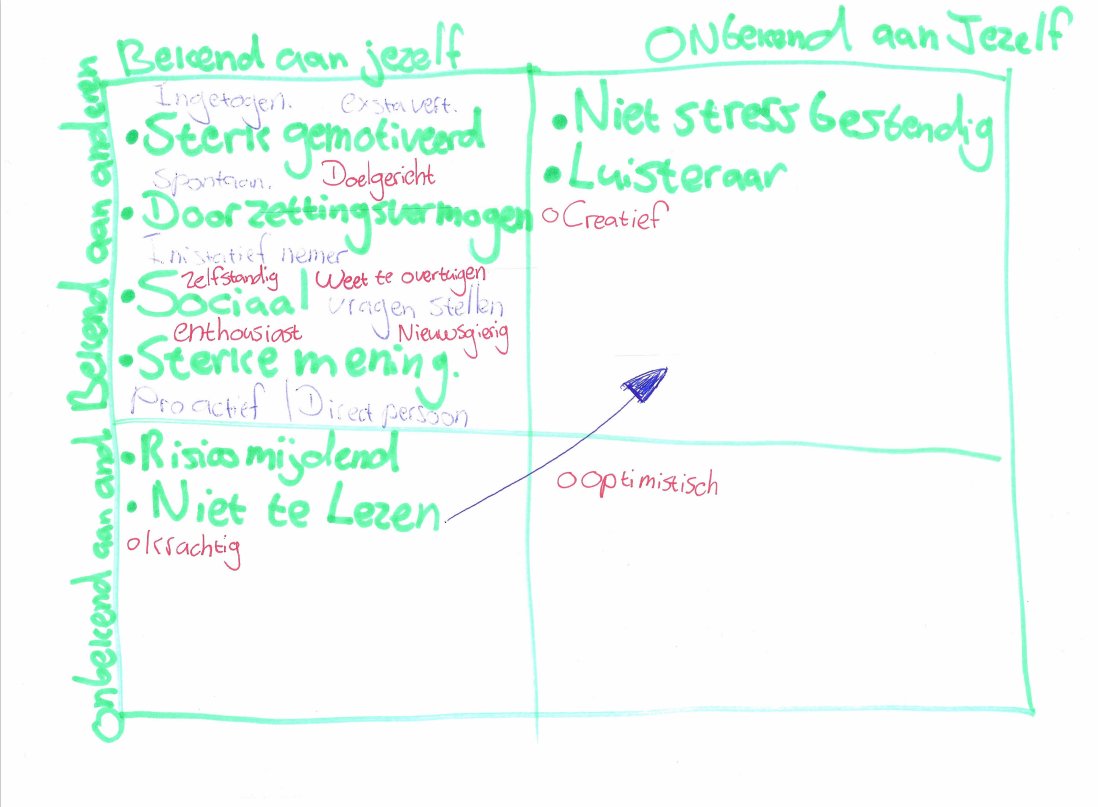 Bekend aan jezelf
Onbekend aan Jezelf
Bekend aan anderen
Ingetogen. exstavert.
• Sterk gemotiveerd
Spontaan. Doelgericht
• Doorzettingsvermogen
Inistatief nemer
zelfstandig Weet te overtuigen
• Sociaal vragen stellen
enthousiast Nieuwsgierig
• Sterke mening.
Pro actief | Direct persoon
• Niet stress bestendig
• Luisteraar
o Creatief
Onbekend aan and.
• Risico mijdend
• Niet te Lezen
o krachtig
o Optimistisch